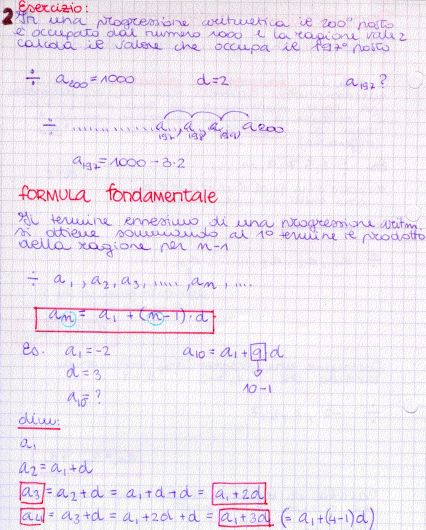 Esercizio:
2 In una progressione aritmetica il 200° posto
è occupato dal numero 1000 e la ragione vale 2
calcola il valore che occupa il 197° posto
÷ a₂₀₀ = 1000 d = 2 a₁₉₇ ?
÷ ................ a₁₉₇, a₁₉₈, a₁₉₉, a₂₀₀
a₁₉₇ = 1000 - 3·2
FORMULA fondamentale
Il termine ennesimo di una progressione aritm.
si ottiene sommando al 1° termine il prodotto
della ragione per n-1
÷ a₁, a₂, a₃, ....., aₙ, ....
aₙ = a₁ + (n-1)·d
es. a₁ = -2 a₁₀ = a₁ + 9 d
d = 3
10-1
a₁₀ = ?
dim:
a₁
a₂ = a₁ + d
a₃ = a₂ + d = a₁ + d + d = a₁ + 2d
a₄ = a₃ + d = a₁ + 2d + d = a₁ + 3d (= a₁ + (4-1)d)